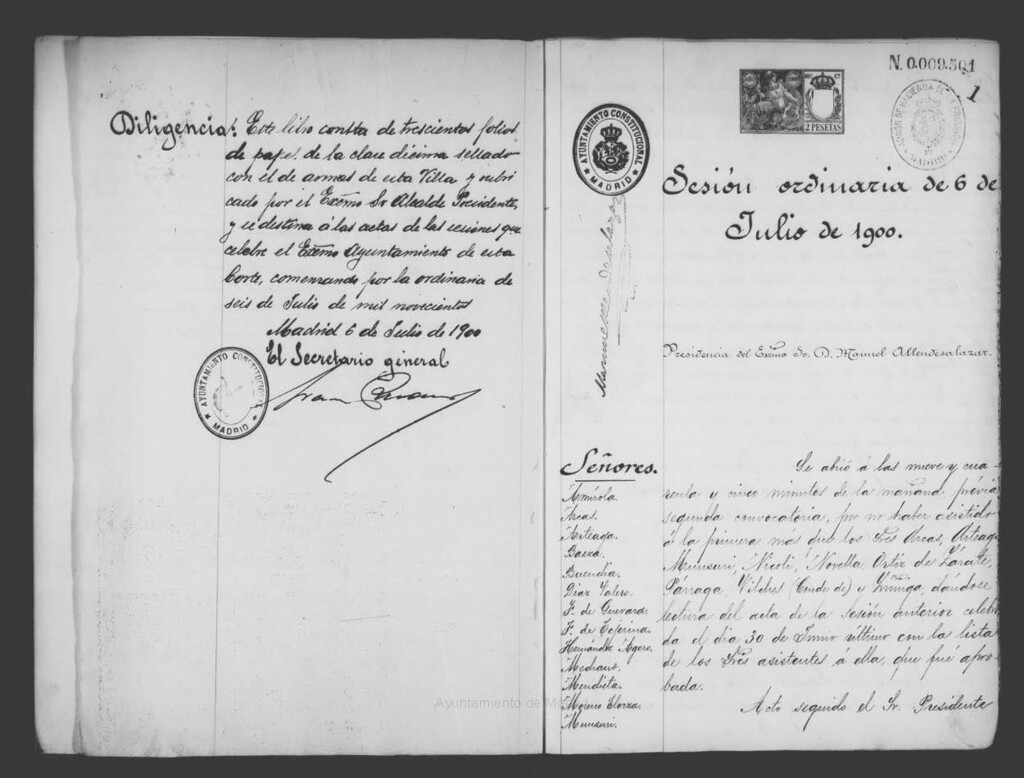 Diligencia: Este libro consta de trescientos folios
de papel de la clase décima sellado
con el de armas de esta Villa y rubri
cado por el Excmo Sr Alcalde Presidente,
y se destina á las actas de las sesiones que
celebre el Excmo Ayuntamiento de esta
Corte, comenzando por la ordinaria de
seis de Julio de mil novecientos
Madrid 6 de Julio de 1900
El Secretario general
AYUNTAMIENTO CONSTITUCIONAL
MADRID
N. 0.009.501
1
2 PESETAS
AYUNTAMIENTO CONSTITUCIONAL
MADRID
Sesión ordinaria de 6 de
Julio de 1900.
Presidencia del Excmo Sr. D. Manuel Allendesalazar.
Señores.
Amírola.
Arcas.
Arteaga.
Baeza.
Buendía.
Diaz Valero.
F. de Guevara.
F. de Tejerina.
Hernández Agero.
Medrano.
Mendieta.
Moreno Elorza.
Munsuri.
Se abrió á las nueve y cua-
renta y cinco minutos de la mañana, prévia
segunda convocatoria, por no haber asistido
á la primera más que los Sres Arcas, Arteaga
Munsuri, Nicoli, Novella, Ortiz de Zárate,
Párraga, Vilches (Conde de) y Zúñiga, dándose
lectura del acta de la sesión anterior celebra
da el día 30 de Junio último con la lista
de los Sres asistentes á ella, que fué apro-
bada.
Acto seguido el Sr. Presidente
Ayuntamiento de M